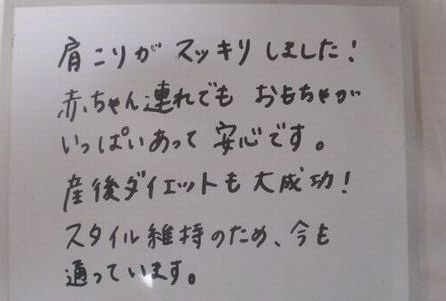 肩こりがスッキリしました!
赤ちゃん連れでもおもちゃが
いっぱいあって安心です。
産後ダイエットも大成功!
スタイル維持のため、今も
通っています。